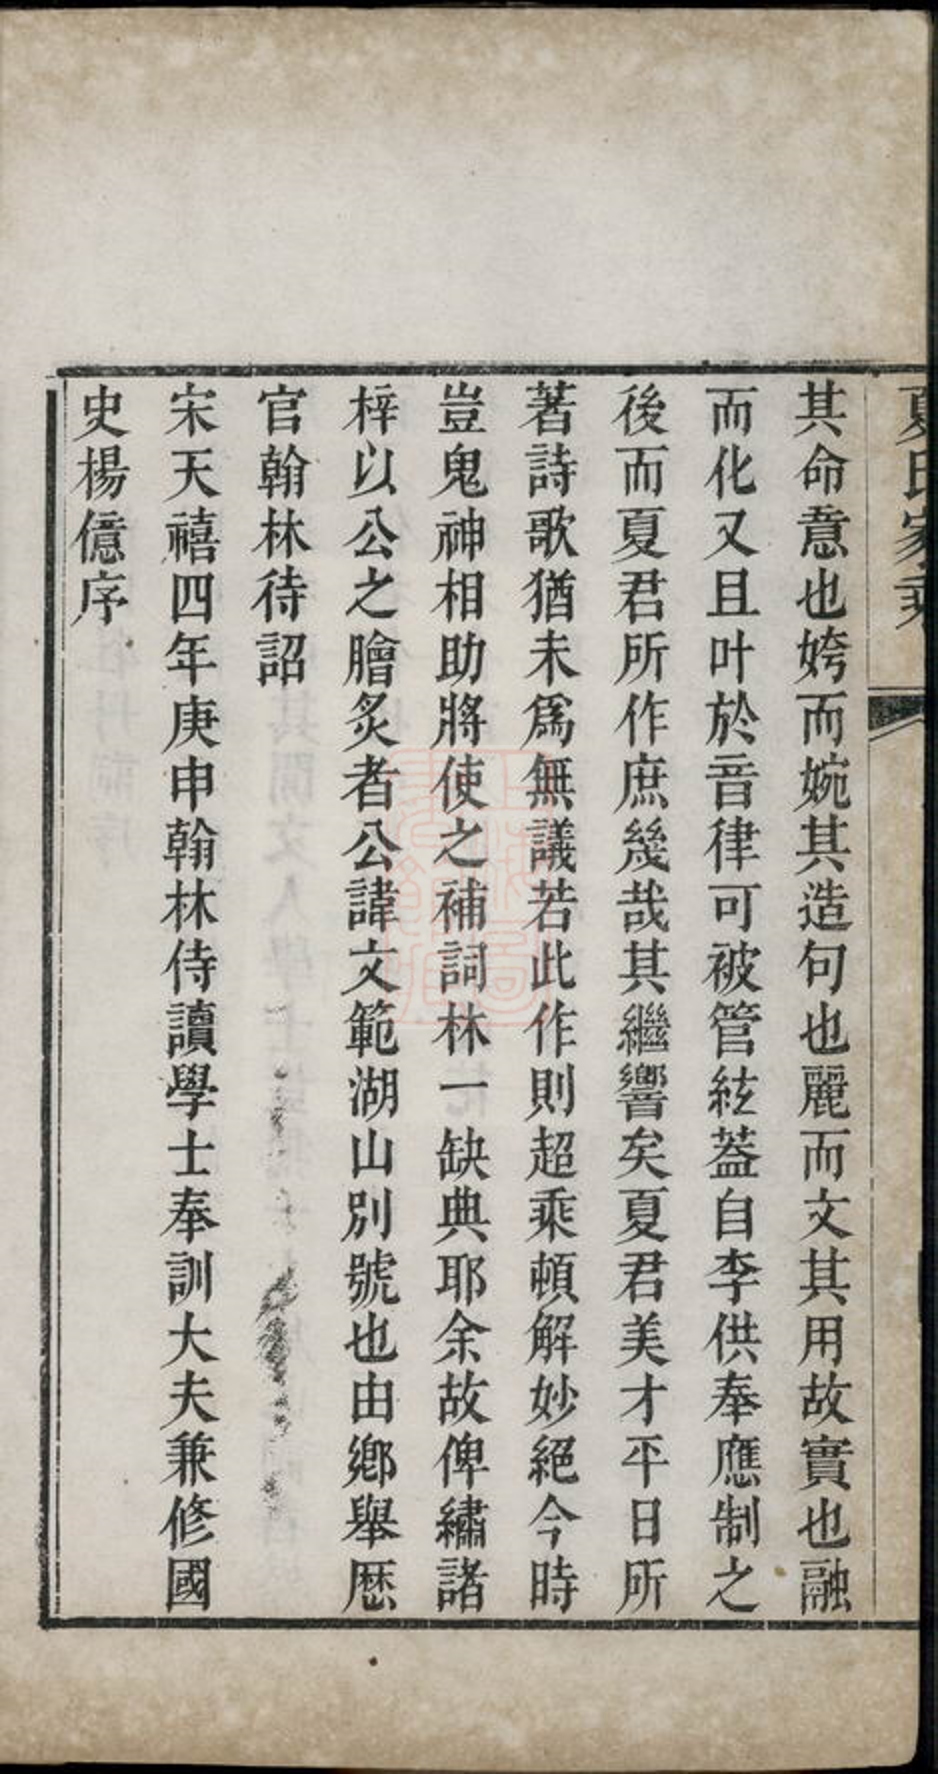 夏氏家乘
其命意也姱而婉其造句也麗而文其用故實也融
而化又且叶於音律可被管絃蓋自李供奉應制之
後而夏君所作庶幾哉其繼響矣夏君美才平日所
著詩歌猶未爲無議若此作則超乘頓解妙絕今時
豈鬼神相助將使之補詞林一缺典耶余故俾繡諸
梓以公之膾炙者公諱文範湖山別號也由鄉舉歷
官翰林待詔
宋天禧四年庚申翰林侍讀學士奉訓大夫兼修國
史楊億序